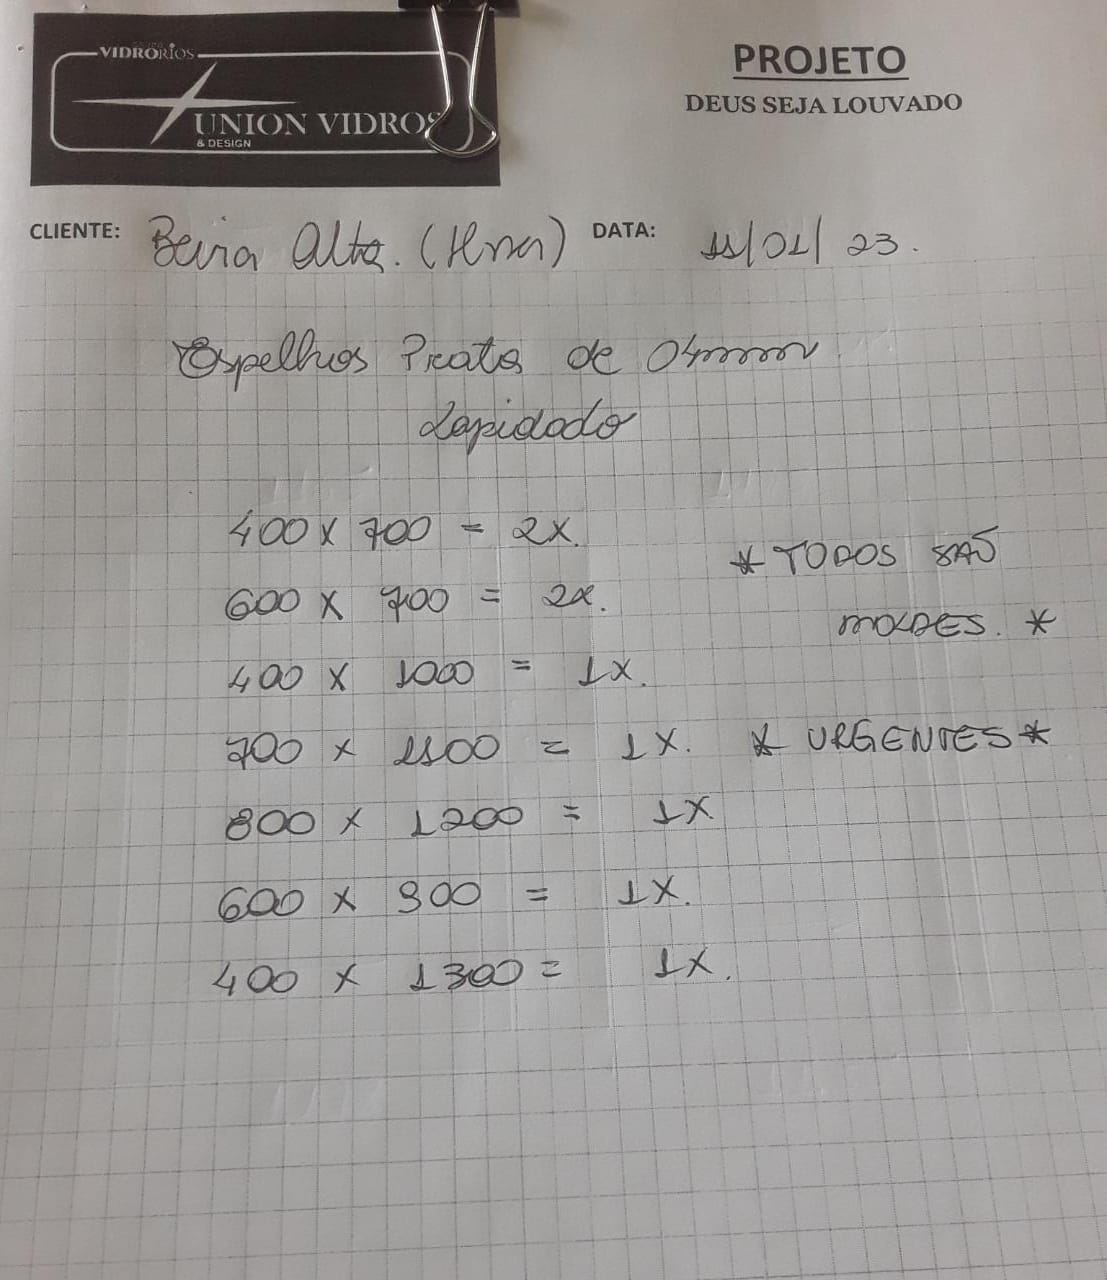 VIDRORIOS
UNION VIDROS
& DESIGN
PROJETO
DEUS SEJA LOUVADO
CLIENTE: Beira Alta. DATA: 11/01/23.
Espelhos Prata de 04mm
Lapidado
400 x 700 = 2x.
600 x 700 = 2x.
* TODOS SÃO
MOLDES. *
400 x 1000 = 1x.
700 x 1100 = 1x. * URGENTES *
800 x 1200 = 1x
600 x 900 = 1x.
400 x 1300 = 1x.